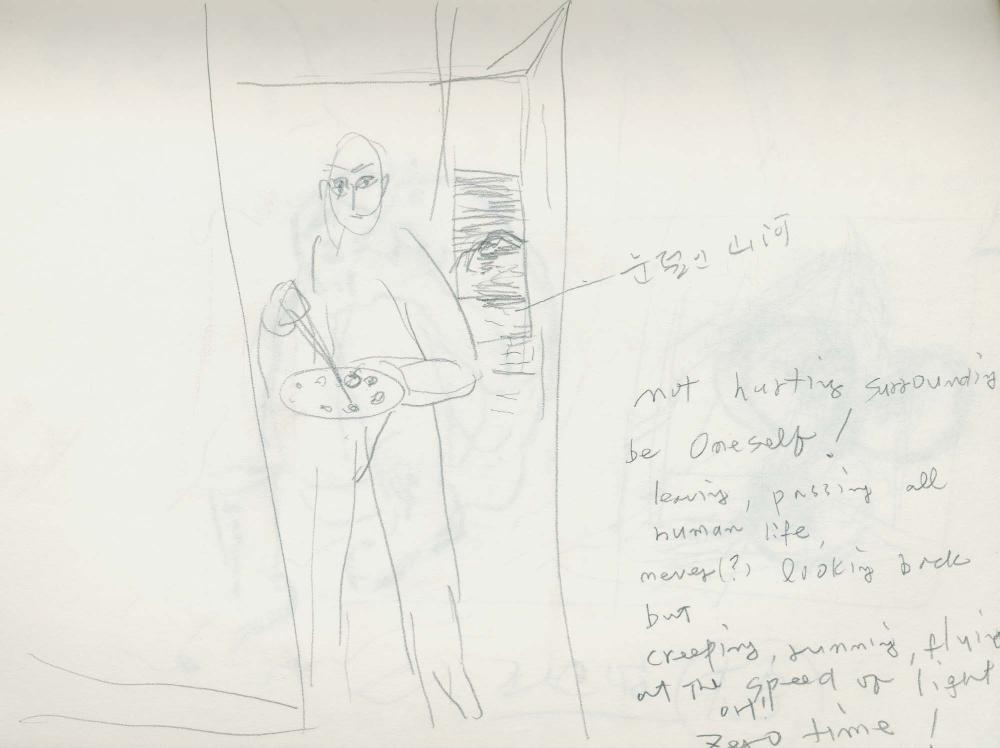 눈덮인 山河
not hurting surrounding
be Oneself!
leaving, passing all
human life,
never(?) looking back
but
creeping, running, flying
at The speed of light
or!!
Zero time!